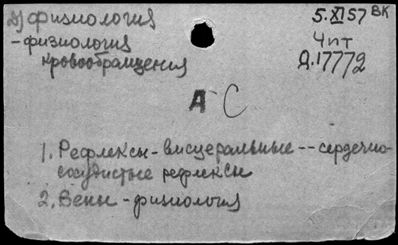 д) физиология
- физиология
кровообращения
5.XI 57 ВК
4 пт
Д.17772
А С
1. Рефлексы - висцеральные -- сердечно-
сосудистые рефлексы
2. Вены - физиология